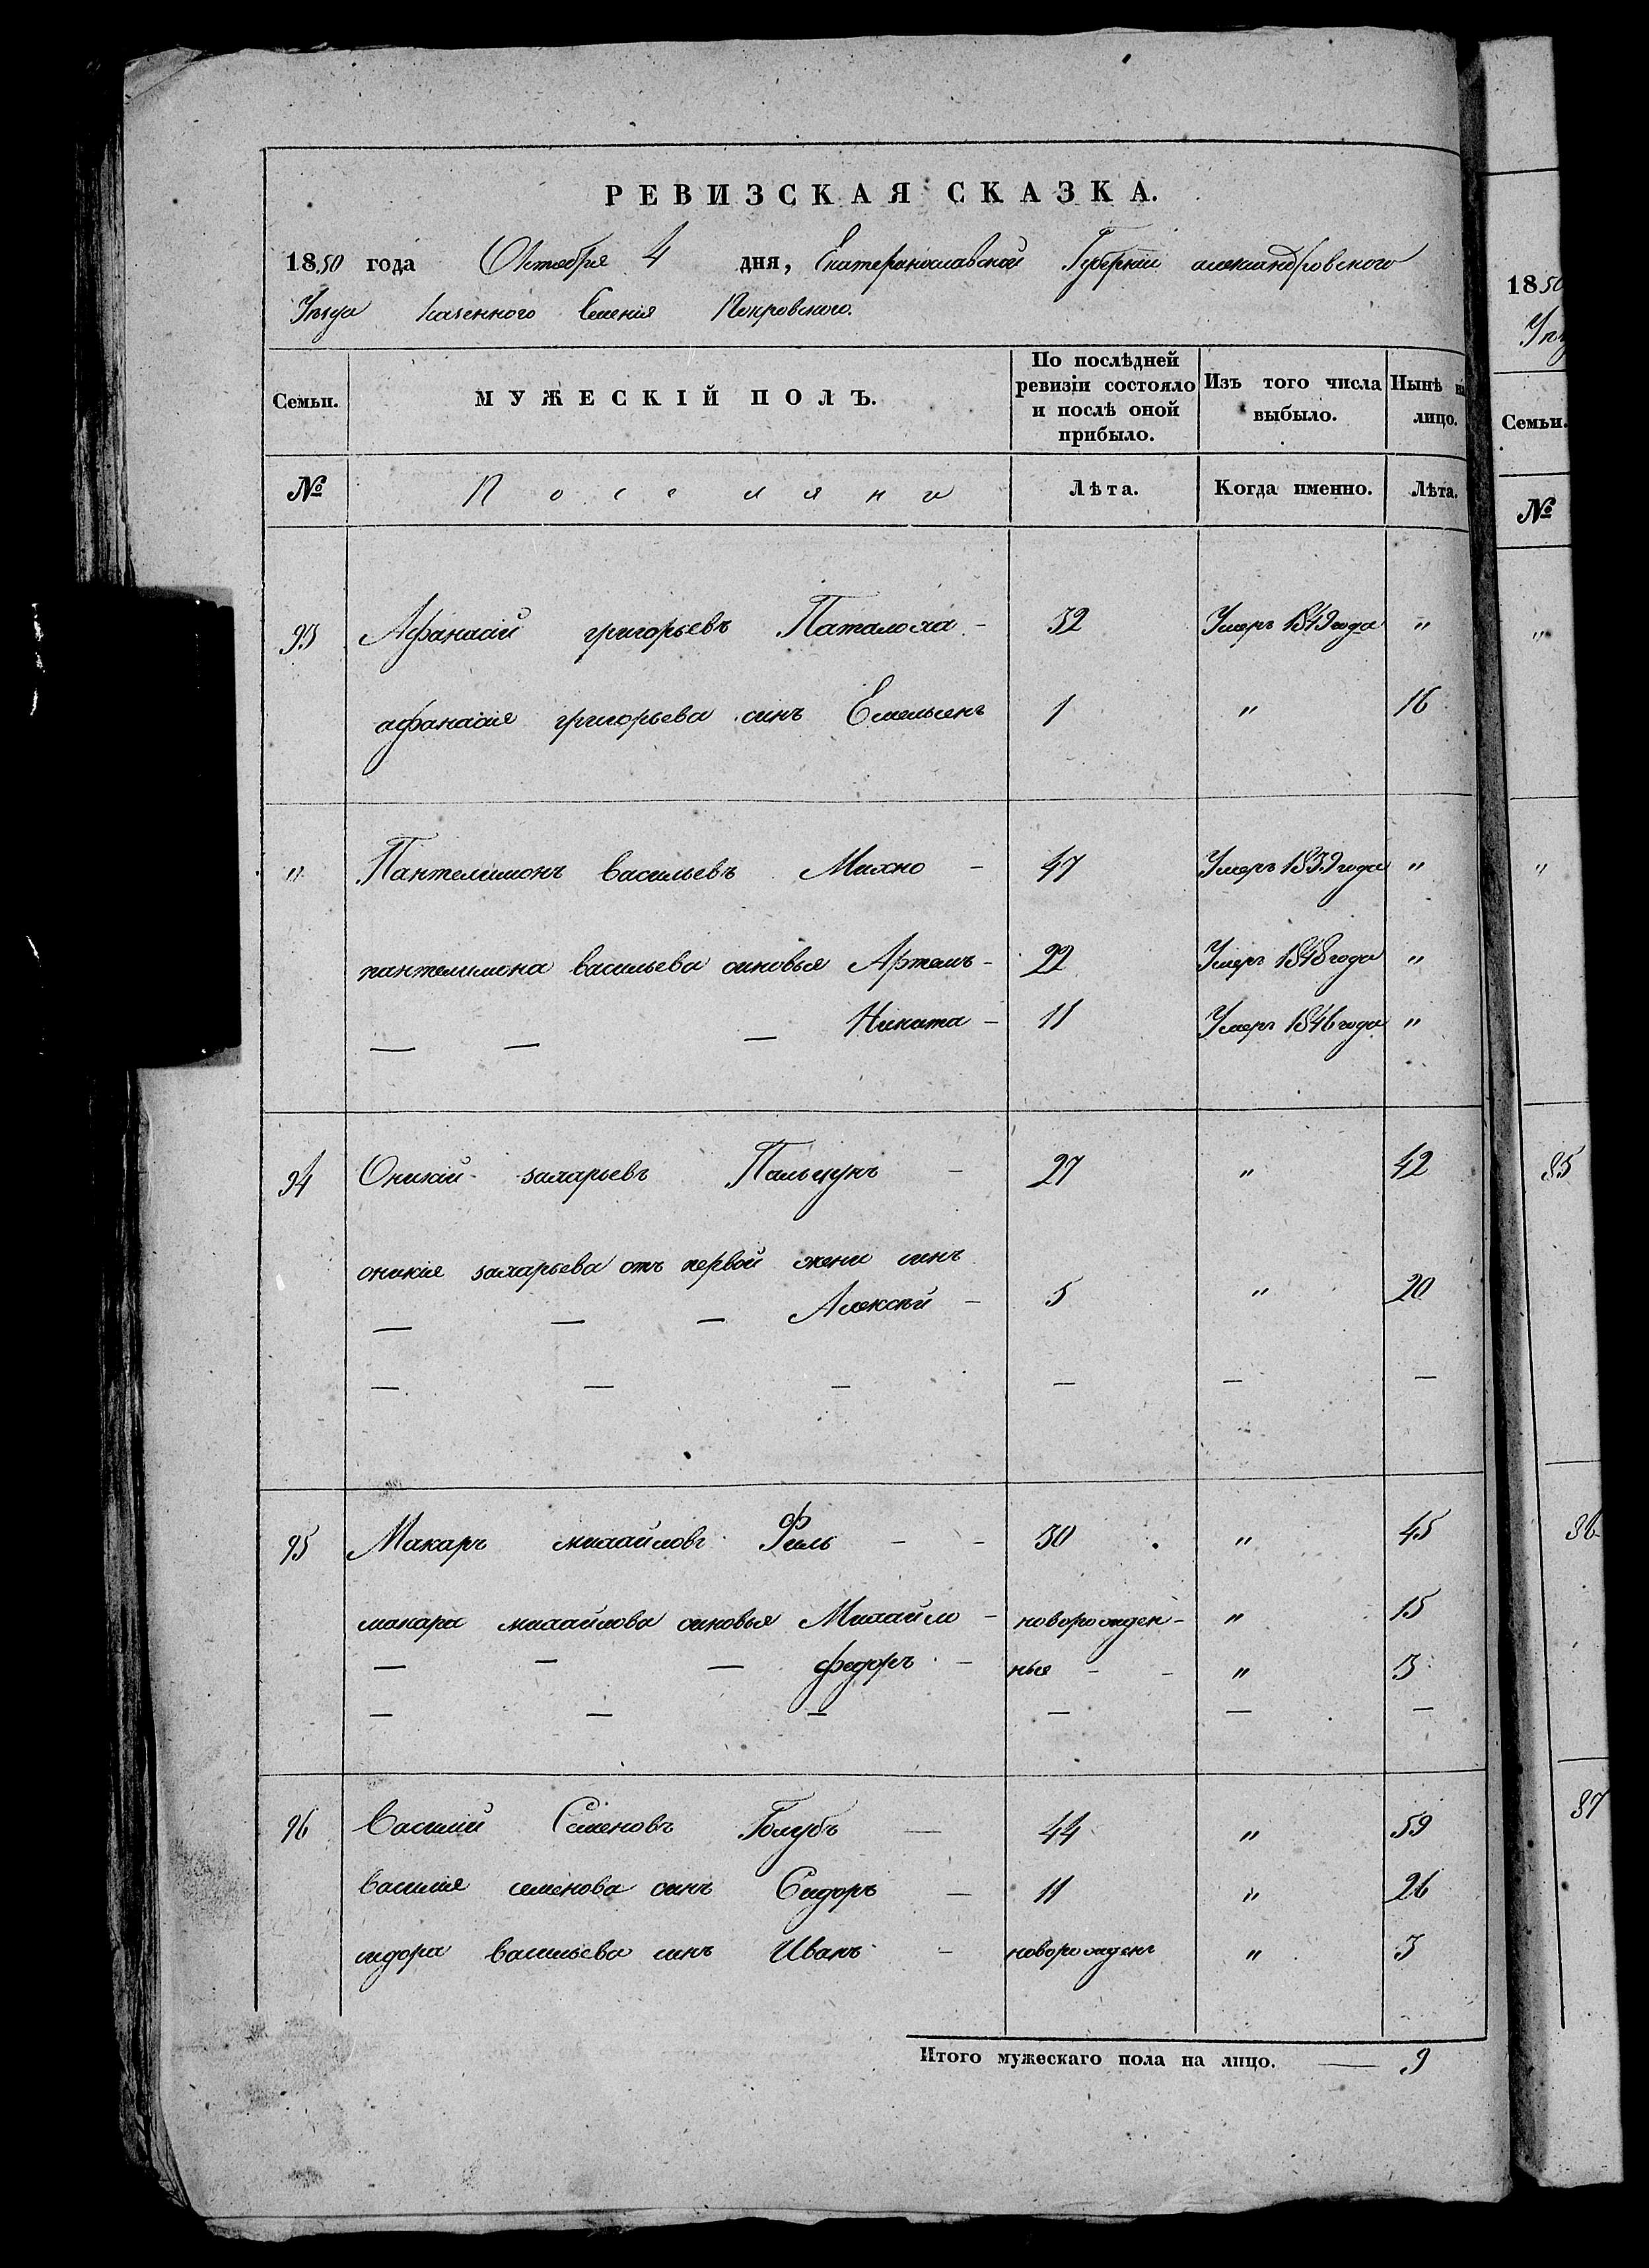 РЕВИЗСКАЯ СКАЗКА.
1850 года Октября 4 дня, Екатеринославской Губерніи александровского
Уезда казенного селения Покровского.
Семьи. МУЖЕСКІЙ ПОЛЪ. По послѣдней ревизіи состояло и послѣ оной прибыло. Изъ того числа выбыло. Нынѣ на лицо.
№ Поселяни Лѣта. Когда именно. Лѣта.
93 Афанасій григорьевъ Паталоха - 32 Умеръ 1849 года "
афанасія григорьева синъ Емельянъ 1 " 16
" Пантелимонъ васильевъ Михно - 47 Умеръ 1839 года "
пантелимона васильева синовья Артемъ - 22 Умеръ 1848 года "
— — — Никита - 11 Умеръ 1846 года "
94 Оникій захарьевъ Пальчунъ - 27 " 42
оникія захарьева отъ первой жени синъ
— — — Алексѣй - 5 " 20
— — — — — —
95 Макаръ михайловъ Филь - - 30 " 45
макара михайлова синовья Михайло - новорожден- " 15
— — — федоръ - ныя - - " 3
— — — — — —
96 Василій Семеновъ Голубъ — 44 " 59
василія семенова синъ Сидоръ — 11 " 26
сидора васильева синъ Иванъ - новорожденъ " 3
Итого мужескаго пола на лицо. — 9
1850
Семьи.
№
"
"
85
86
87